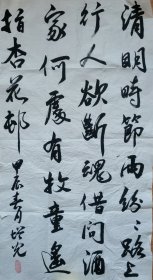 清明時節雨紛〻路上
行人欲斷魂借問酒
家何處有牧童遙
指杏花邨
甲辰春月